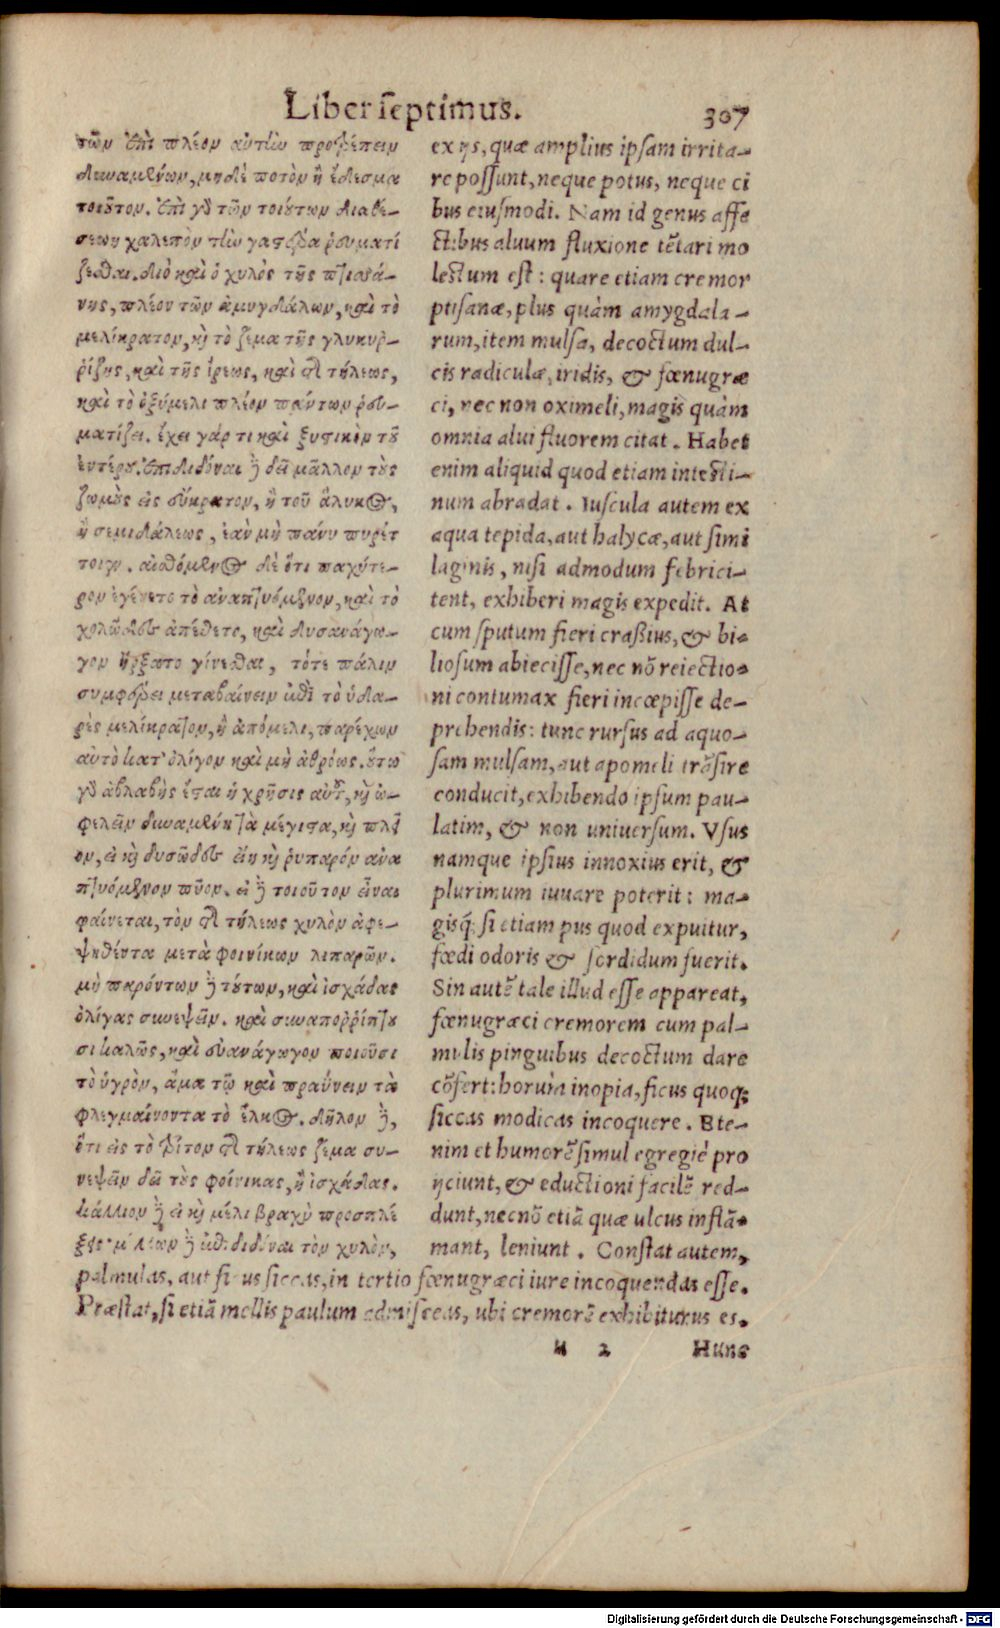 Liber septimus. 307
τῶν ἐπὶ πλέον αὐτὴν προτρέπειν
δυναμένων, μηδὲ ποτὸν ἢ ἔδεσμα
τοιοῦτον. ἐπὶ γὸ τῶν τοιούτων διαθέ-
σεων χαλεπὸν τὴν γαστέρα ῥευματί
ζεσθαι. διὸ καὶ ὁ χυλὸς τῆς πτισά-
νης, πλέον τῶν ἀμυγδάλων, καὶ τὸ
μελίκρατον, κὴ τὸ ζέμα τῆς γλυκυῤ-
ῥίζης, καὶ τῆς ἴρεως, καὶ τῆ τήλεως,
καὶ τὸ ὀξύμελι πλέον πάντων ῥευ-
ματίζει. ἔχει γάρ τι καὶ ξυστικὸν τοῦ
ἐντέρου. ἐπιδιδόναι ἢ δεῖ μᾶλλον τοὺς
ζωμοὺς εἰς εὔκρατον, ἢ τοῦ ἅλυκος,
ἢ σεμιδάλεως, ἐὰν μὴ πάνυ πυρέτ
τοιεν. αἰσθόμενος δὲ ὅτι παχύτε-
ρον ἐγένετο τὸ ἀναπτυόμενον, καὶ τὸ
χολῶδες ἀπέθετο, καὶ δυσανάγω-
γον ἤρξατο γίνεσθαι, τότε πάλιν
συμφέρει μεταβαίνειν ἐπὶ τὸ ὑδα-
ρὲς μελίκρατον, ἢ ἀπόμελι, παρέχων
αὐτὸ κατ' ὀλίγον καὶ μὴ ἀθρόως. οὕτω
γὸ ἀβλαβὴς ἔσται ἡ χρῆσις αὐτοῦ, κὴ ὠ-
φελεῖν δυναμένη τὰ μέγιστα, κὴ πλεῖ
ον, εἰ κὴ δυσῶδες εἴη κὴ ῥυπαρόν ἀνα
πτυόμενον πῦον. εἰ ἢ τοιοῦτον εἶναι
φαίνεται, τὸν τῆ τήλεως χυλὸν ἀφε-
ψηθέντα μετὰ φοινίκων λιπαρῶν.
μὴ παρόντων ἢ τούτων, καὶ ἰσχάδας
ὀλίγας συνεψεῖν. καὶ συναποῤῥίπτου
σι καλῶς, καὶ εὐανάγωγον ποιοῦσι
τὸ ὑγρὸν, ἅμα τῷ καὶ πραΰνειν τὰ
φλεγμαίνοντα τὸ ἕλκος. δῆλον ἢ,
ὅτι εἰς τὸ τρίτον τῆ τήλεως ζέμα συ-
νεψεῖν δεῖ τοὺς φοίνικας, ἢ ἰσχάδας.
κάλλιον ἢ εἰ κὴ μέλι βραχὺ προσπλέ
ξεις μέλλων ἢ ἐπιδιδόναι τὸν χυλὸν,
ex ijs, quæ amplius ipsam irrita-
re possunt, neque potus, neque ci
bus eiusmodi. Nam id genus affe
ctibus aluum fluxione tẽtari mo
lectum est: quare etiam cremor
ptisanæ, plus quàm amygdala-
rum, item mulsa, decoctum dul-
cis radiculæ, iridis, & fœnugræ
ci, nec non oximeli, magis quàm
omnia alui fluorem citat. Habet
enim aliquid quod etiam intesti-
num abradat. Iuscula autem ex
aqua tepida, aut halycæ, aut simi
laginis, nisi admodum febrici-
tent, exhiberi magis expedit. At
cum sputum fieri crassius, & bi-
liosum abiecisse, nec nõ reiectio-
ni contumax fieri incœpisse de-
prehendis: tunc rursus ad aquo-
sam mulsam, aut apomeli trãsire
conducit, exhibendo ipsum pau-
latim, & non uniuersum. Vsus
namque ipsius innoxius erit, &
plurimum iuuare poterit: ma-
gisq́; si etiam pus quod expuitur,
fœdi odoris & sordidum fuerit.
Sin autẽ tale illud esse appareat,
fœnugræci cremorem cum pal-
mulis pinguibus decoctum dare
cõfert: horum inopia, ficus quoq;
siccas modicas incoquere. Ete-
nim et humorẽ simul egregiè pro
ijciunt, & eductioni facilẽ red-
dunt, necnõ etiã quæ ulcus inflã-
mant, leniunt. Constat autem,
palmulas, aut ficus siccas, in tertio fœnugræci iure incoquendas esse.
Præstat, si etiã mellis paulum admisceas, ubi cremorẽ exhibiturus es.
u 2 Hunc
Digitalisierung gefördert durch die Deutsche Forschungsgemeinschaft - DFG